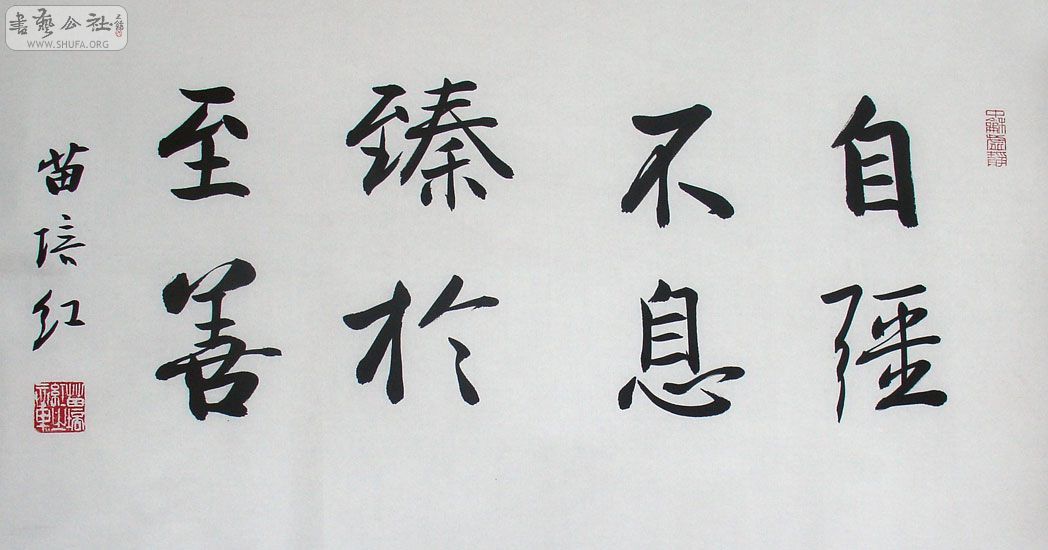 自彊
不息
臻於
至善
苗培红
書藝公社
WWW.SHUFA.ORG